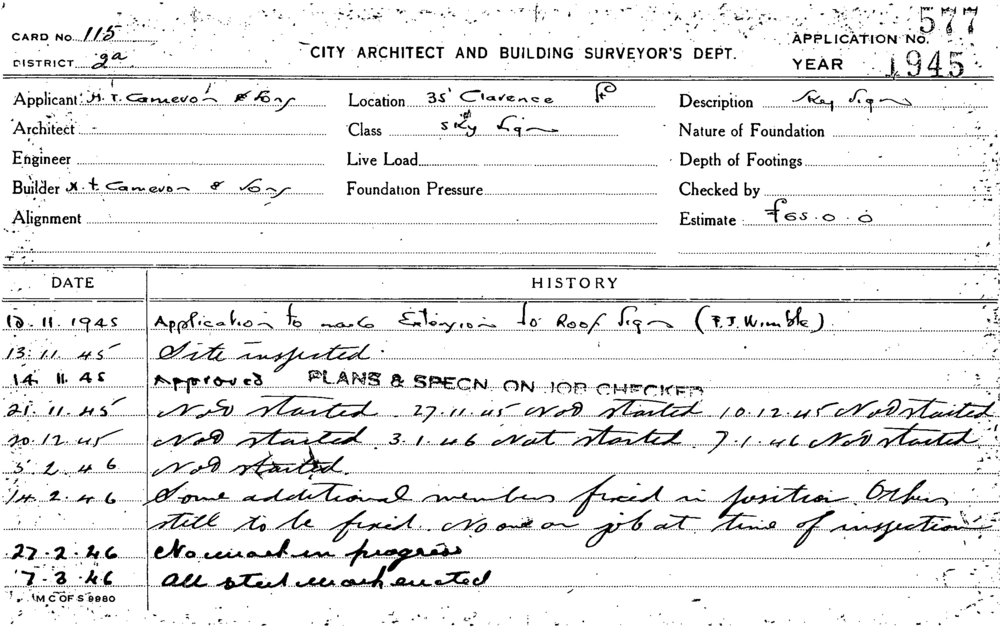 CARD No. 115
DISTRICT 2a
CITY ARCHITECT AND BUILDING SURVEYOR'S DEPT.
APPLICATION No. 577
YEAR 1945
Applicant H. T. Cameron & Sons Location 35 Clarence St Description Sky Sign
Architect Class Sky Sign Nature of Foundation
Engineer Live Load Depth of Footings
Builder H. T. Cameron & Sons Foundation Pressure Checked by
Alignment Estimate £65.0.0
DATE HISTORY
12.11.1945 Application to make Extension to Roof Sign (F.J. Wimble)
13.11.45 Site inspected.
14.11.45 Approved PLANS & SPECN. ON JOB CHECKED
21.11.45 Not started. 27.11.45 Not started 10.12.45 Not started
20.12.45 Not started. 3.1.46 Not started. 7.1.46 Not started
5.2.46 Not started.
14.2.46 Some additional members fixed in position Others
still to be fixed. No one on job at time of inspection
27.2.46 No work in progress
7.3.46 All steel work erected
M C OF S 9980